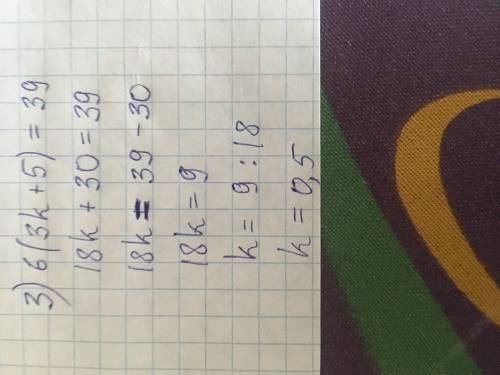 3) 6(3k+5) = 39
18k + 30 = 39
18k = 39 - 30
18k = 9
k = 9 : 18
k = 0,5